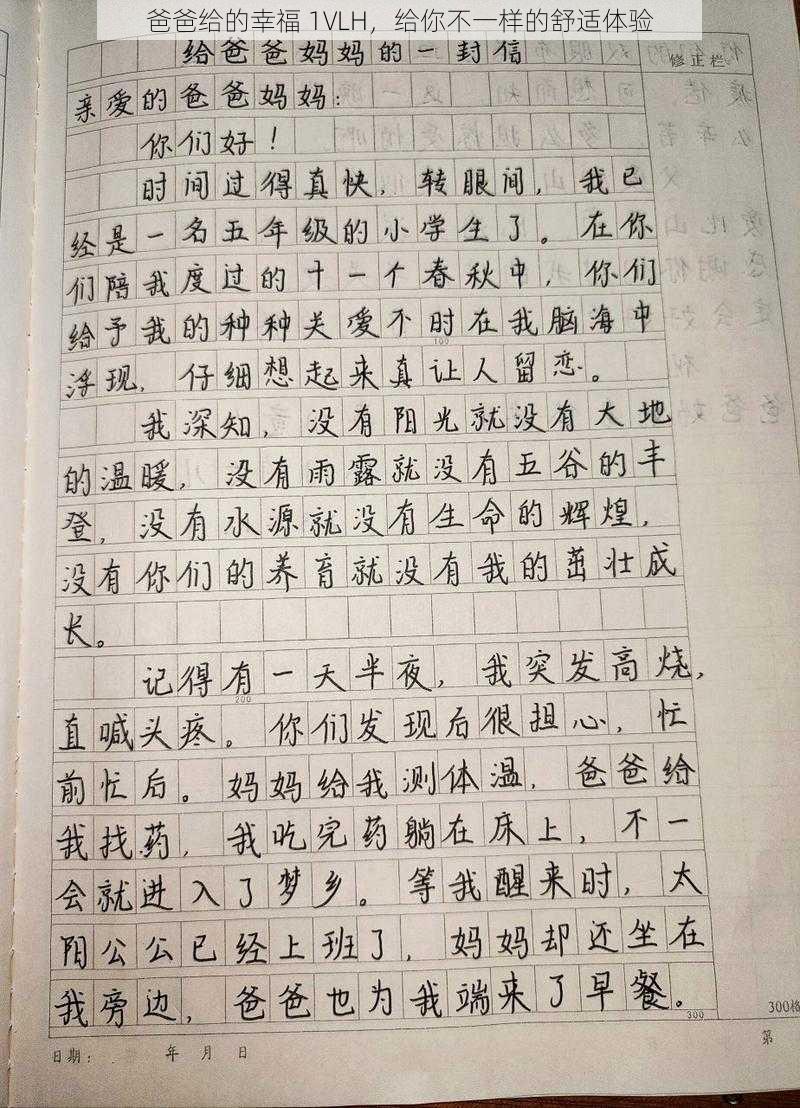 爸爸给的幸福 1VLH，给你不一样的舒适体验
给爸爸妈妈的一封信
修正栏
亲爱的爸爸妈妈：
你们好！
时间过得真快，转眼间，我已
经是一名五年级的小学生了。在你
们陪我度过的十一个春秋中，你们
给予我的种种关爱不时在我脑海中
100
浮现，仔细想起来真让人留恋。
我深知，没有阳光就没有大地
的温暖，没有雨露就没有五谷的丰
登，没有水源就没有生命的辉煌，
没有你们的养育就没有我的茁壮成
长。
记得有一天半夜，我突发高烧，
200
直喊头疼。你们发现后很担心，忙
前忙后。妈妈给我测体温，爸爸给
我找药，我吃完药躺在床上，不一
会就进入了梦乡。等我醒来时，太
阳公公已经上班了，妈妈却还坐在
我旁边，爸爸也为我端来了早餐。
300
300格
日期： 年 月 日
第